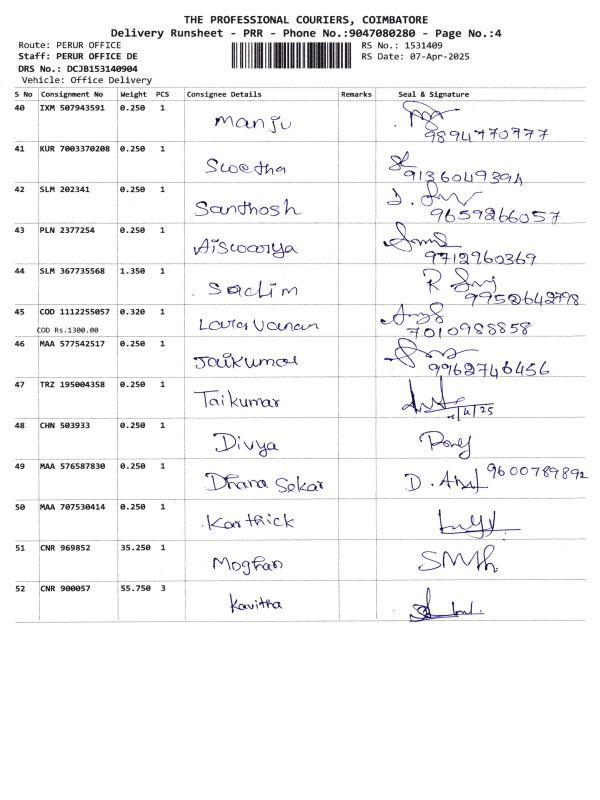 THE PROFESSIONAL COURIERS, COIMBATORE
Delivery Runsheet - PRR - Phone No.:9047080280 - Page No.:4
Route: PERUR OFFICE RS No.: 1531409
Staff: PERUR OFFICE DE RS Date: 07-Apr-2025
DRS No.: DCJB153140904
Vehicle: Office Delivery
S No Consignment No Weight PCS Consignee Details Remarks Seal & Signature
40 IXM 507943591 0.250 1 Manju
9894770777
41 KUR 7003370208 0.250 1 Swetha
42 SLM 202341 0.250 1 Santhosh
9659266057
43 PLN 2377254 0.250 1 Aiswarya
9712960369
44 SLM 367735568 1.350 1
9952642798
45 COD 1112255057 0.320 1
COD Rs.1300.00 7010988858
46 MAA 577542517 0.250 1 Jaikumar
9962746456
47 TRZ 195004358 0.250 1 Taikumar
48 CHN 503933 0.250 1 Divya
49 MAA 576587830 0.250 1 Dhana Sekar 9600789892
50 MAA 707530414 0.250 1 Karthick
51 CNR 969852 35.250 1 Moghan
52 CNR 900057 55.750 3 Kavitha